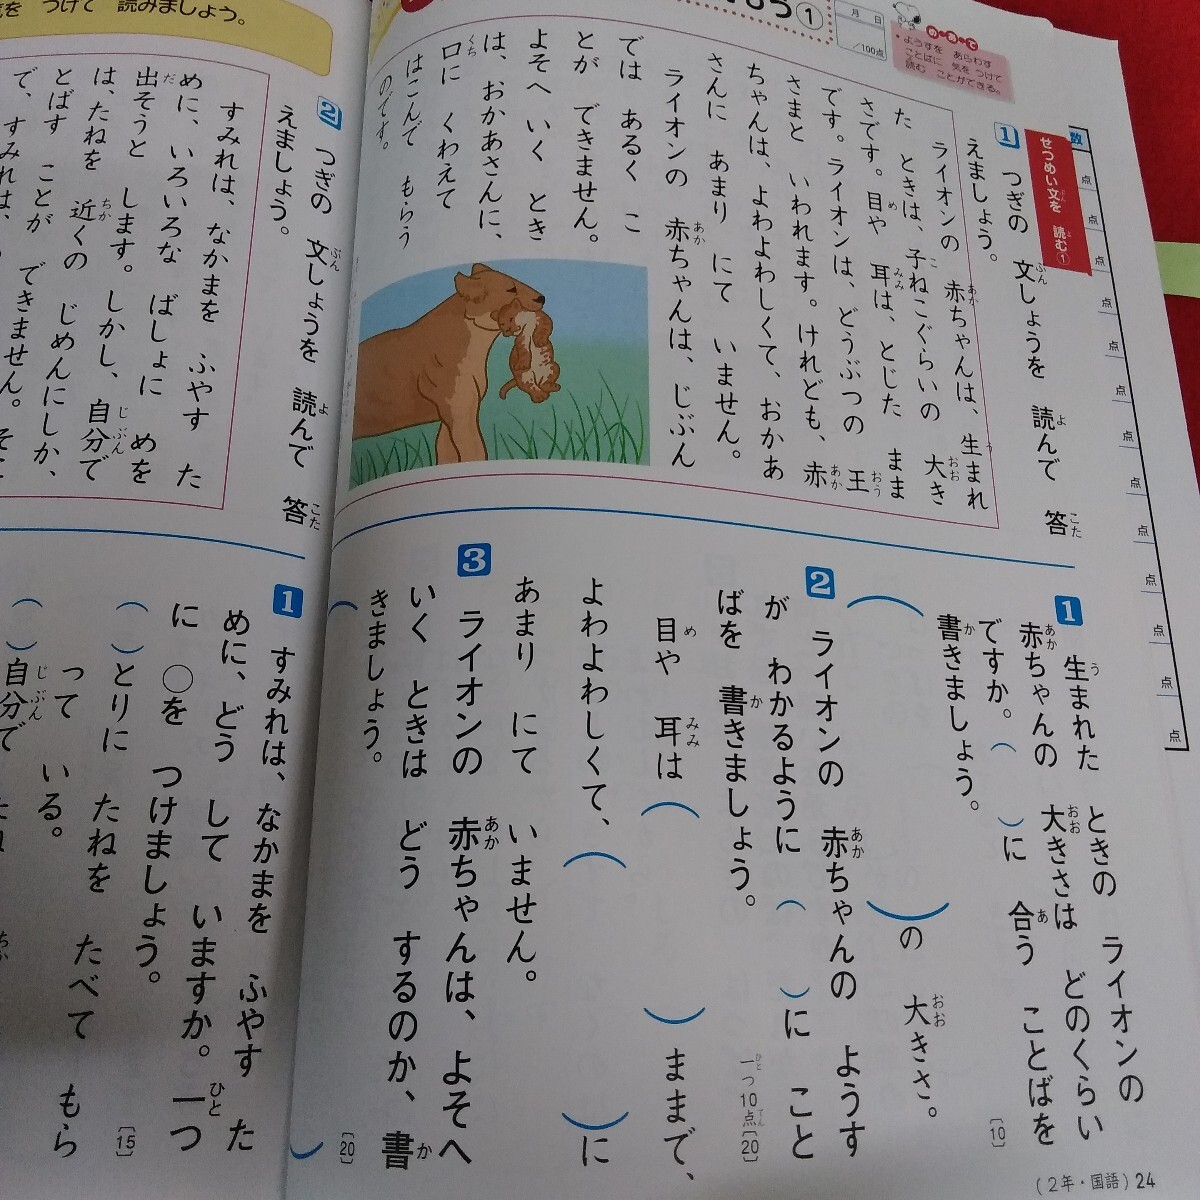 月 日
/100点
め・あ・て
・ようすを あらわす
ことばに 気を つけて
読む ことができる。
せつめい文を 読む①
数
点
点
点
点
点
点
点
点
点
点
点
点
点
1 つぎの 文しょうを 読んで 答
えましょう。
ライオンの 赤ちゃんは、生まれ
た ときは、子ねこぐらいの 大き
さです。目や 耳は、とじた まま
です。ライオンは、どうぶつの 王
さまと いわれます。けれども、赤
ちゃんは、よわよわしくて、おかあ
さんに あまり にて いません。
ライオンの 赤ちゃんは、じぶん
では あるく こ
とが できません。
よそへ いく とき
は、おかあさんに、
口に くわえて
はこんで もらう
のです。
1 生まれた ときの ライオンの
赤ちゃんの 大きさは どのくらい
ですか。( )に 合う ことばを
書きましょう。
[10]
( )の 大きさ。
2 ライオンの 赤ちゃんの ようす
が わかるように ( )に こと
ばを 書きましょう。
一つ10点[20]
目や 耳は( )ままで、
よわよわしくて、( )に
あまり にて いません。
3 ライオンの 赤ちゃんは、よそへ
いく ときは どう するのか、書
きましょう。
[20]
( )
(2年・国語)24
つけて 読みましょう。
2 つぎの 文しょうを 読んで 答
えましょう。
すみれは、なかまを ふやす た
めに、いろいろな ばしょに めを
出そうと します。しかし、自分で
は、たねを 近くの じめんにしか、
とばす ことが できません。
で、すみれは、
1 すみれは、なかまを ふやす た
めに、どう して いますか。一つ
に ○を つけましょう。
[15]
( )とりに たねを たべて もら
って いる。
( )自分で